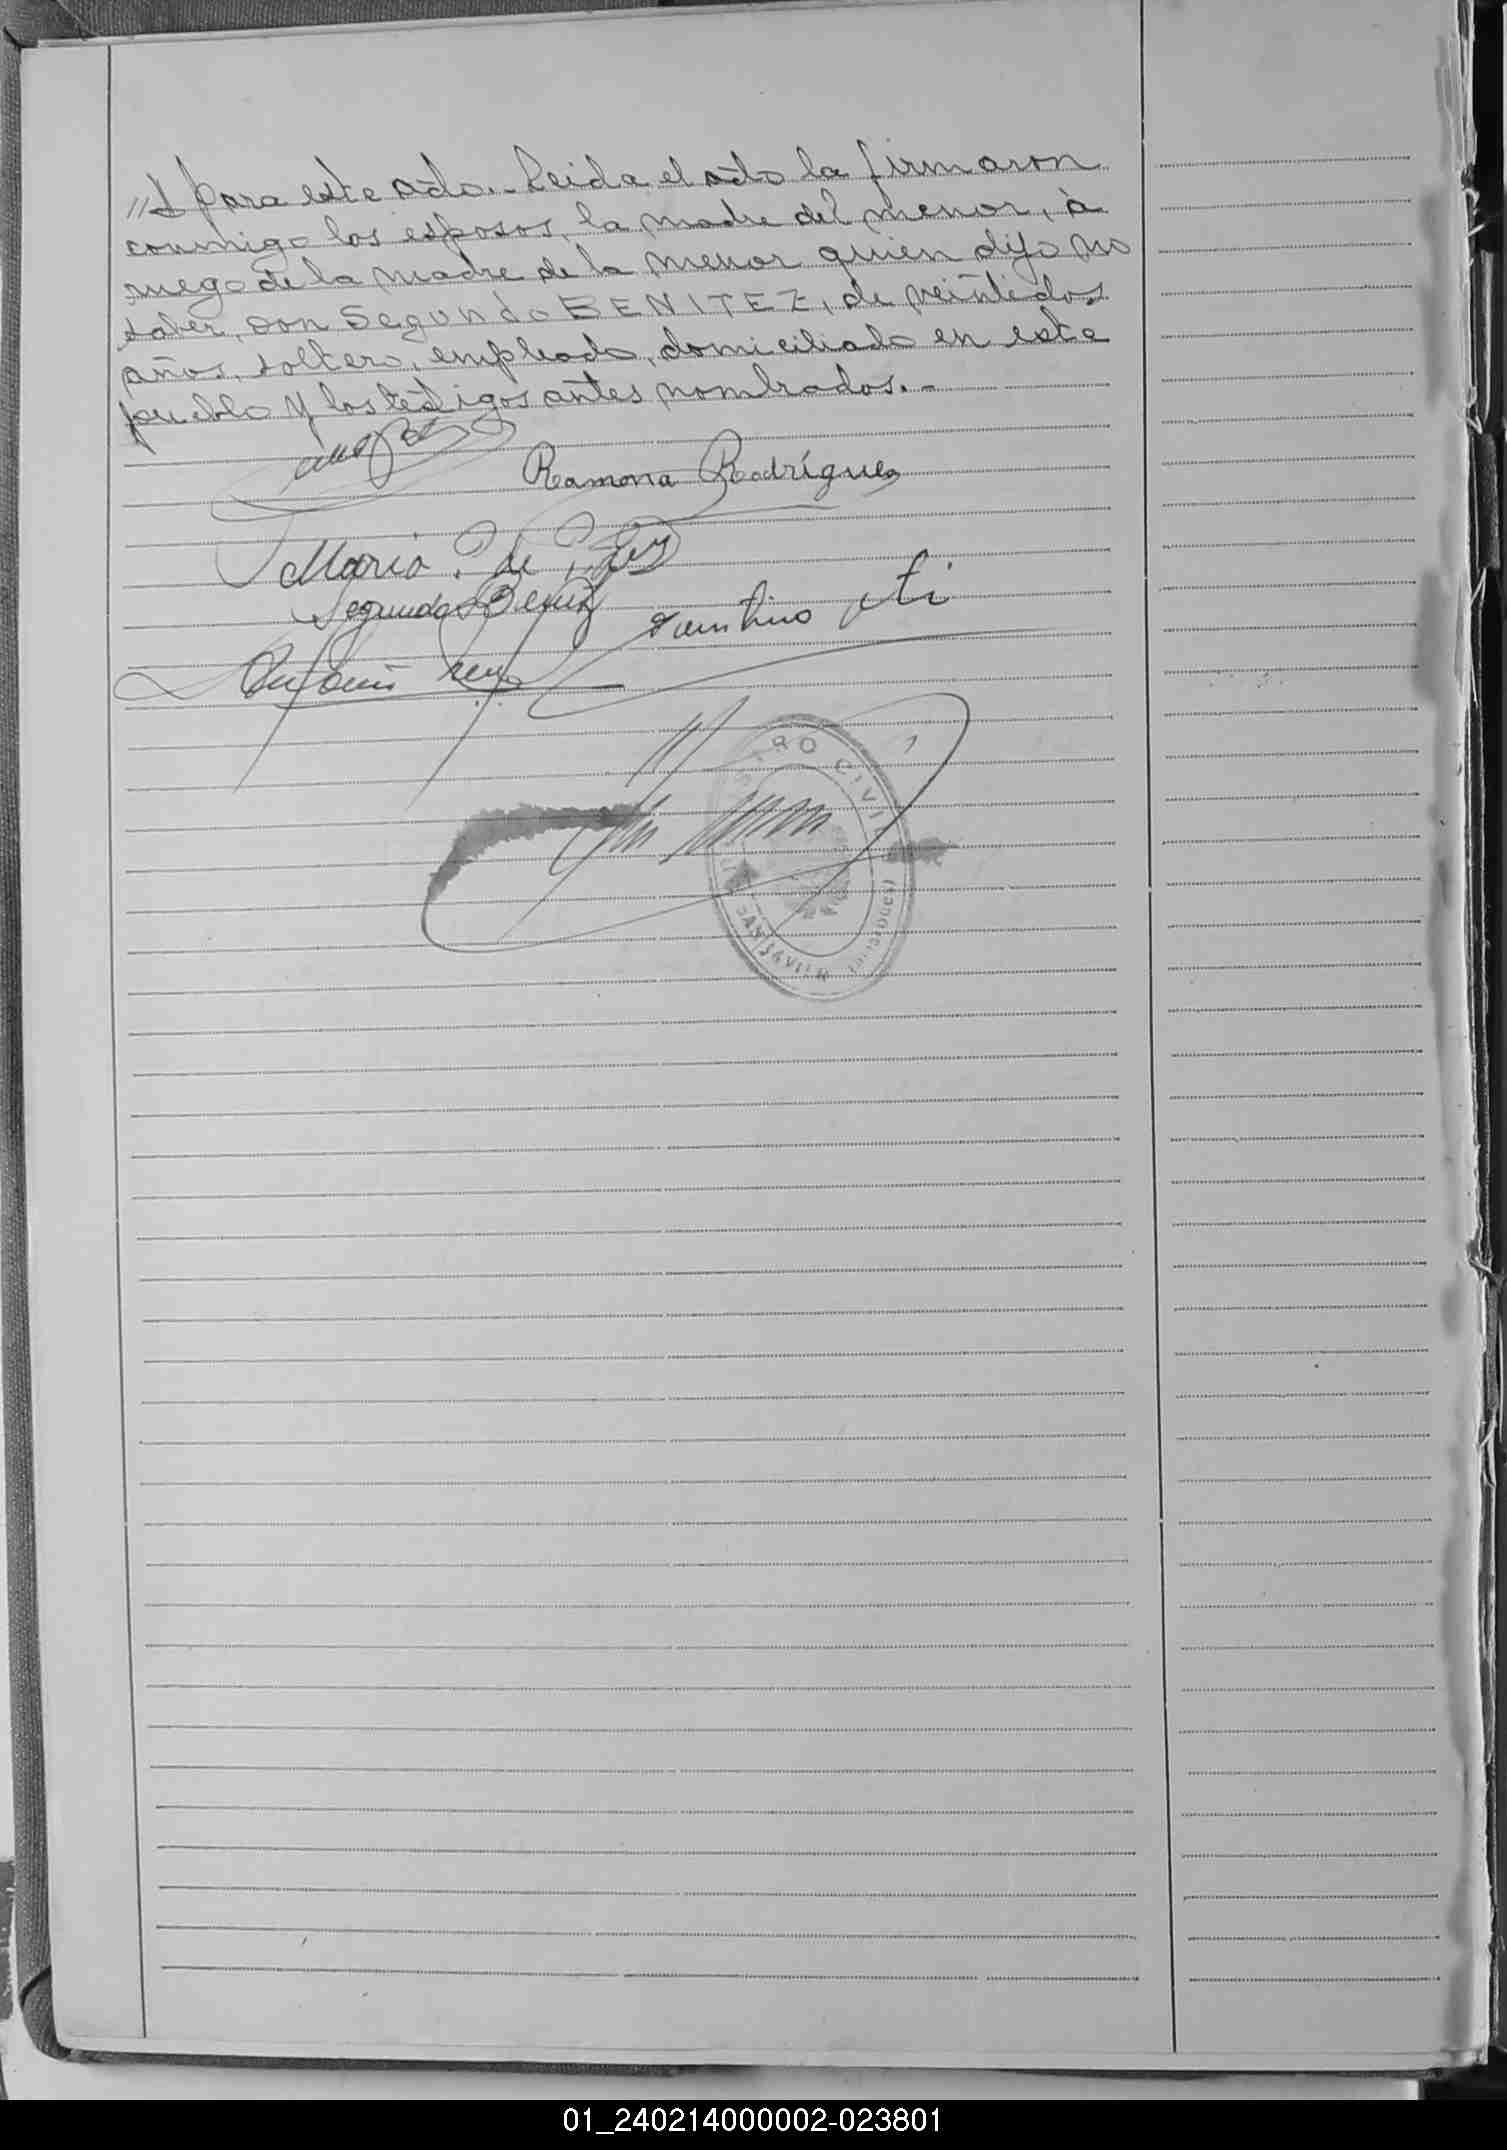 para este acto.- Leida el acta la firmaron
conmigo los esposos, la madre del menor, à
ruego de la madre de la menor quien dijo no
saber, don Segundo BENITEZ, de veintidos
años, soltero, empleado, domiciliado en este
pueblo y los testigos antes nombrados.-
Ramona Rodríguez
Maria de
Segundo Benitez
Antonio
CIVIL
SAN JAVIER
01_240214000002-023801